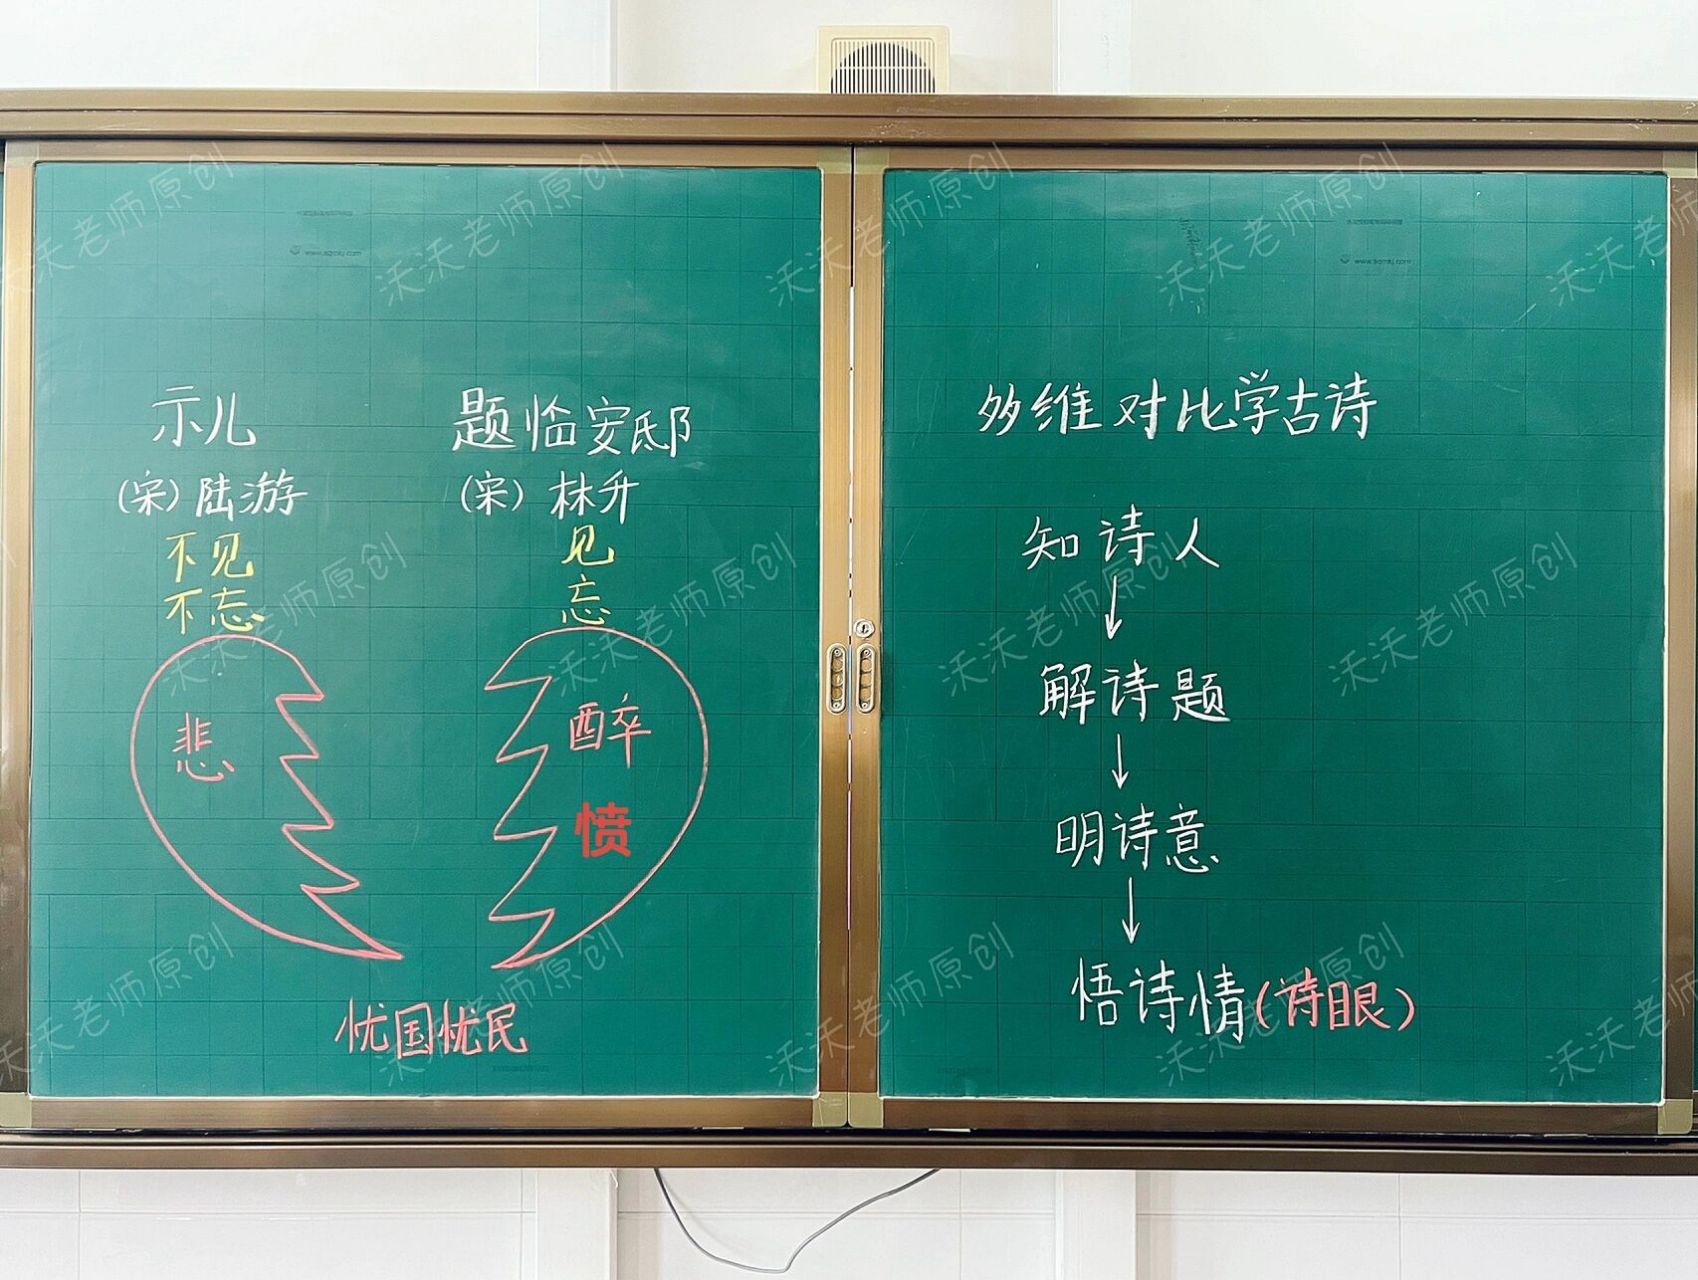 示儿
(宋)陆游
不见
不忘
悲
题临安邸
(宋)林升
见
忘
醉
愤
忧国忧民
多维对比学古诗
知诗人
↓
解诗题
↓
明诗意
↓
悟诗情(诗眼)
沃沃老师原创